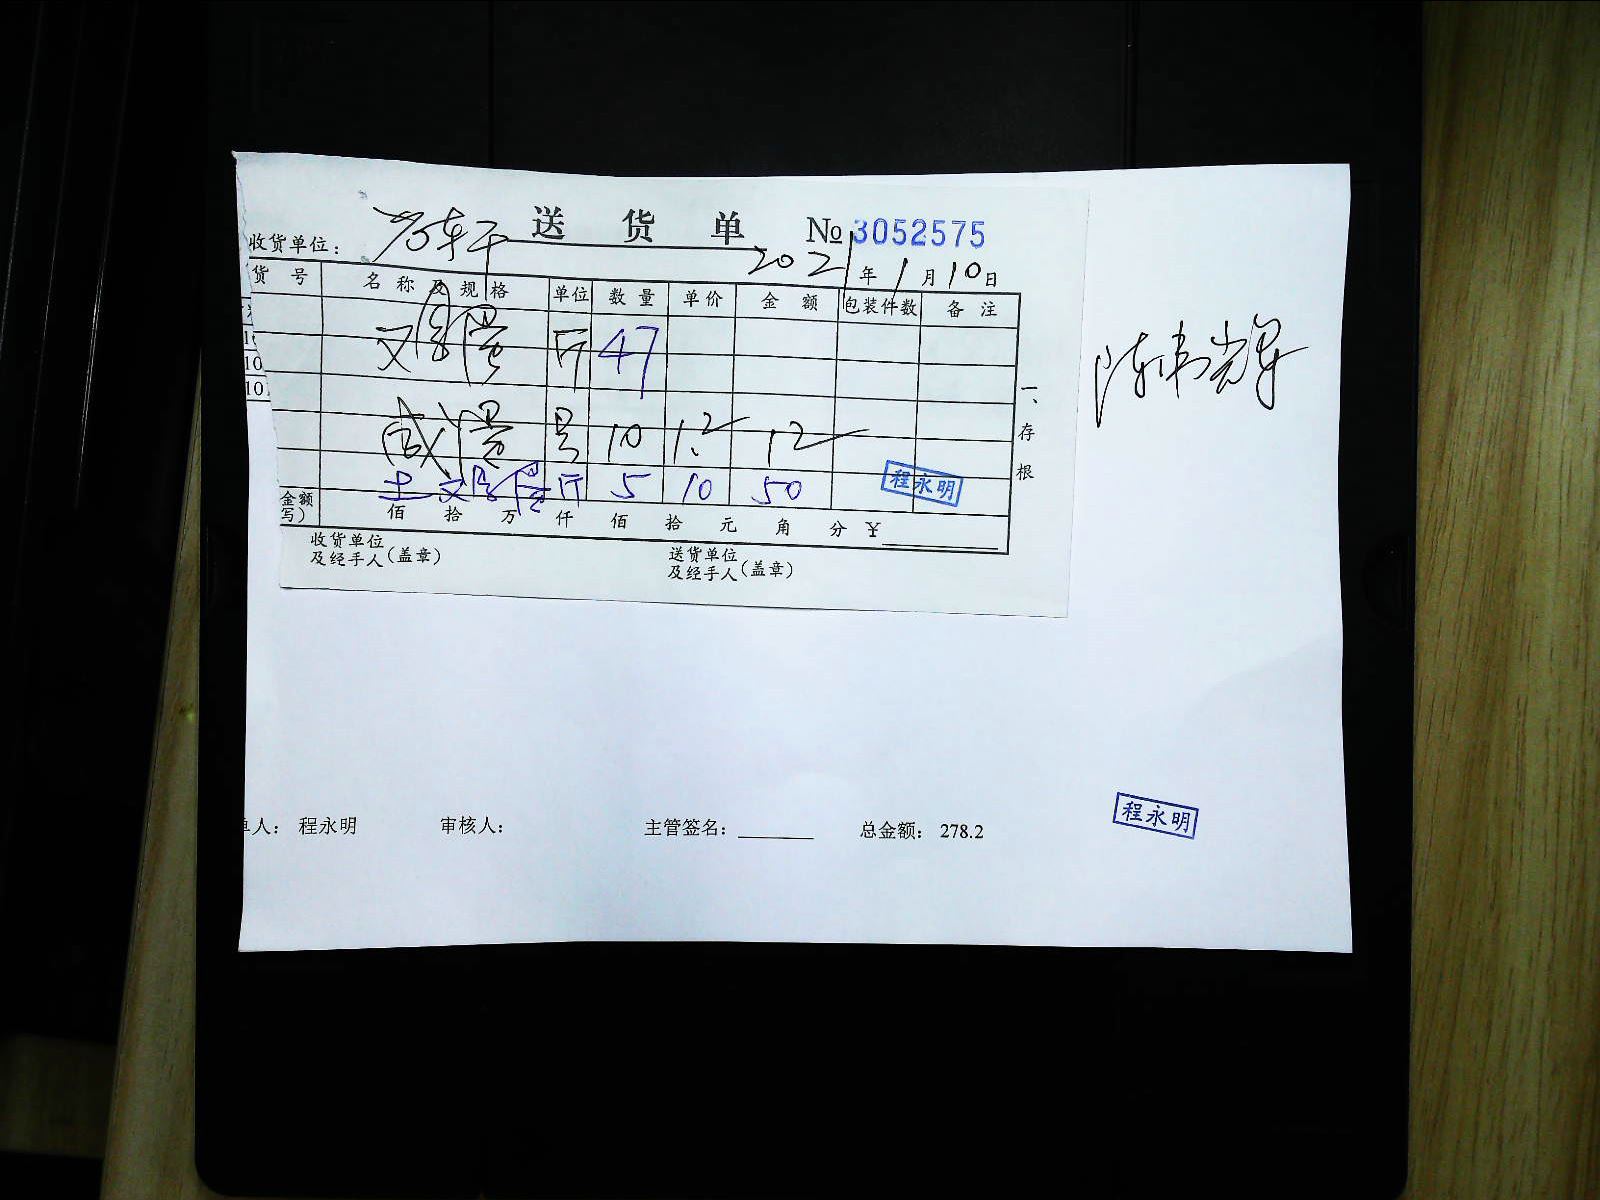 送 货 单 № 3052575
收货单位：
2021年1月10日
货 号 名 称 及 规 格 单位 数 量 单 价 金 额 包装件数 备 注
又鸡蛋 斤 47
10
10
咸蛋 10 1.2 12
土又鸡蛋 斤 5 10 50
程永明
金额
写） 佰 拾 万 仟 佰 拾 元 角 分 ￥
一、存根
收货单位
及经手人（盖章）
送货单位
及经手人（盖章）
单人： 程永明 审核人： 主管签名： 总金额： 278.2
程永明